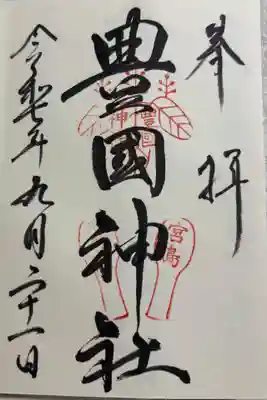 奉拝
豊國神社
豊國
神
宮島
令和七年九月二十一日